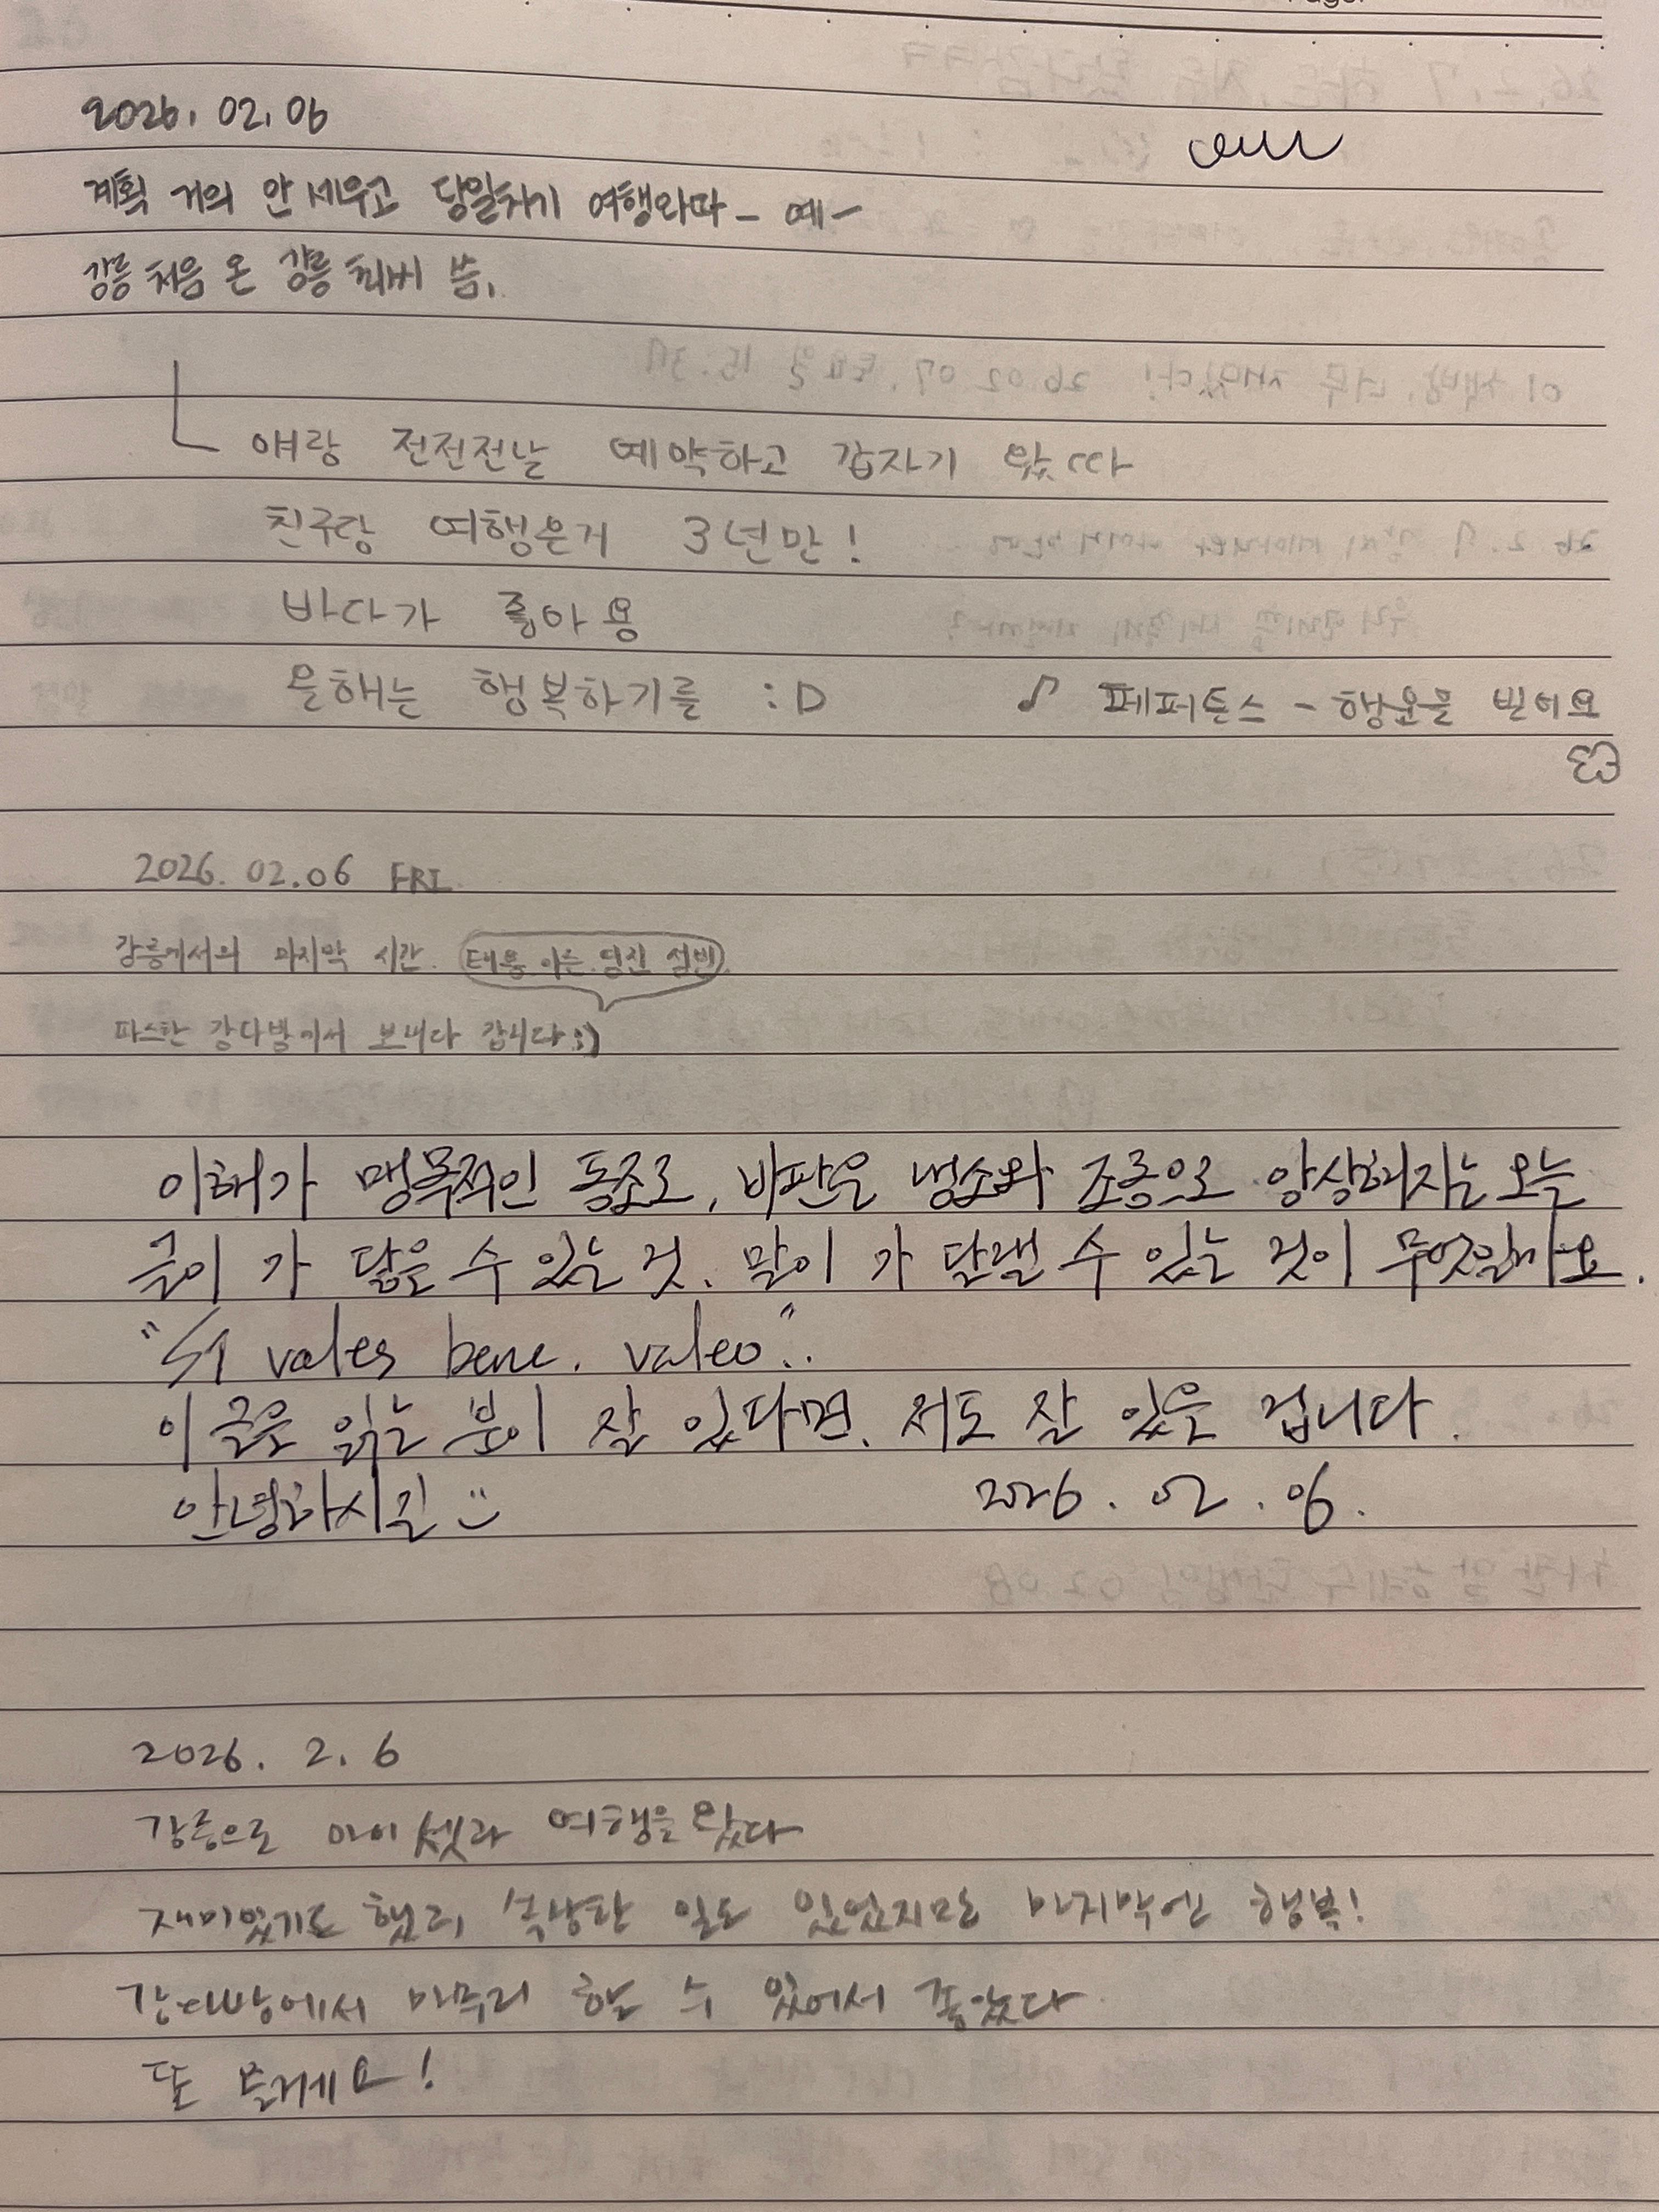 2026. 02. 06
계획 거의 안 세우고 당일치기 여행와따 - 예 -
강릉 처음 온 강릉 씨 씀.
얘랑 전전전날 예약하고 갑자기 왔따
친구랑 여행온거 3년만!
바다가 좋아용
올해는 행복하기를 :D ♪ 페퍼톤스 - 행운을 빌어요
2026. 02. 06 FRI
강릉에서의 마지막 시간.
따스한 강다방에서 보내다 갑니다 :)
이해가 맹목적인 동조로, 비판은 냉소와 조롱으로 앙상해지는 오늘
글이 가 닿을 수 있는 것. 말이 가 달랠 수 있는 것이 무엇일까요.
"Si vales bene. valeo"..
이 글을 읽는 분이 잘 있다면, 저도 잘 있을 겁니다.
안녕하시길 :) 2026. 02. 06.
2026. 2. 6
강릉으로 아이 셋과 여행을 왔다
재미있기도 했고, 속상한 일도 있었지만 마지막엔 행복!
강다방에서 마무리 할 수 있어서 좋았다
또 올게요!